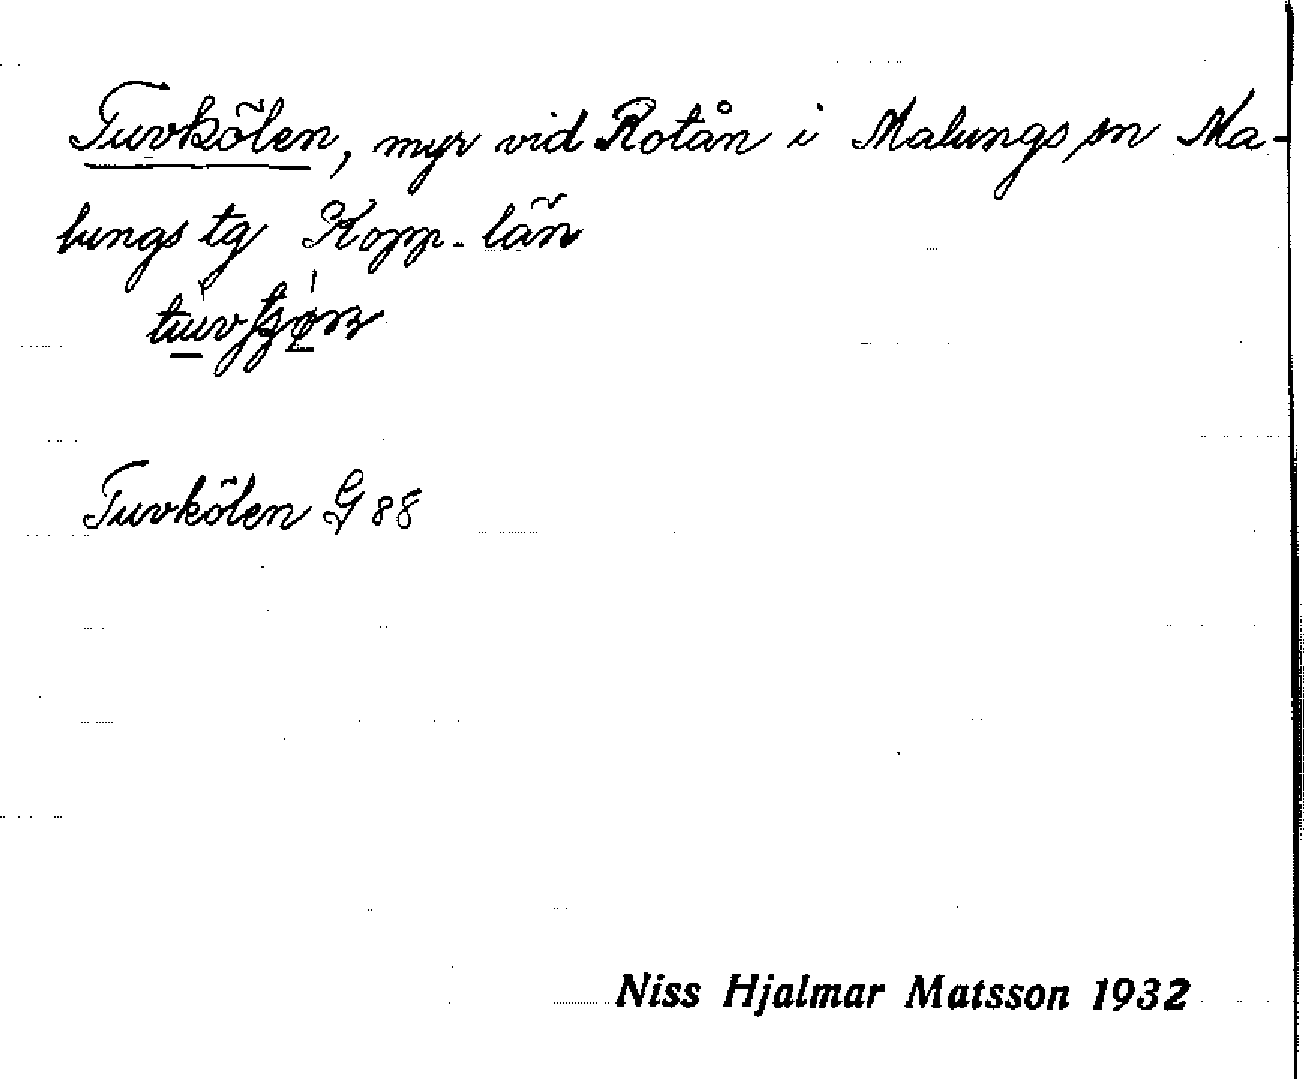 Tuvkölen, myr vid Rotån i Malungs sn Ma-
lungs tg Kopp. län
Tuvkölen G 88
Niss Hjalmar Matsson 1932